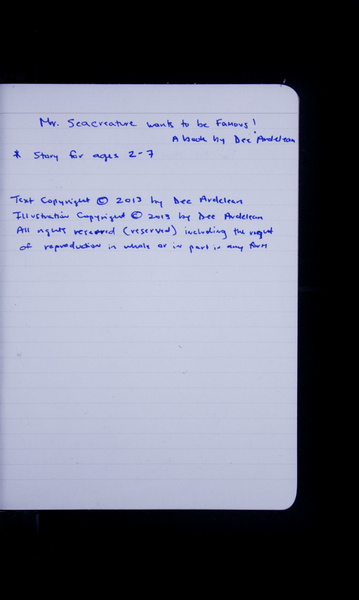 Mr. Seacreature wants to be Famous!
A book by Dee Ardelean
* Story for ages 2-7
Text Copyright © 2013 by Dee Ardelean
Illustration Copyright © 2013 by Dee Ardelean
All rights reserved (reserved) including the right
of reproduction in whole or in part in any form